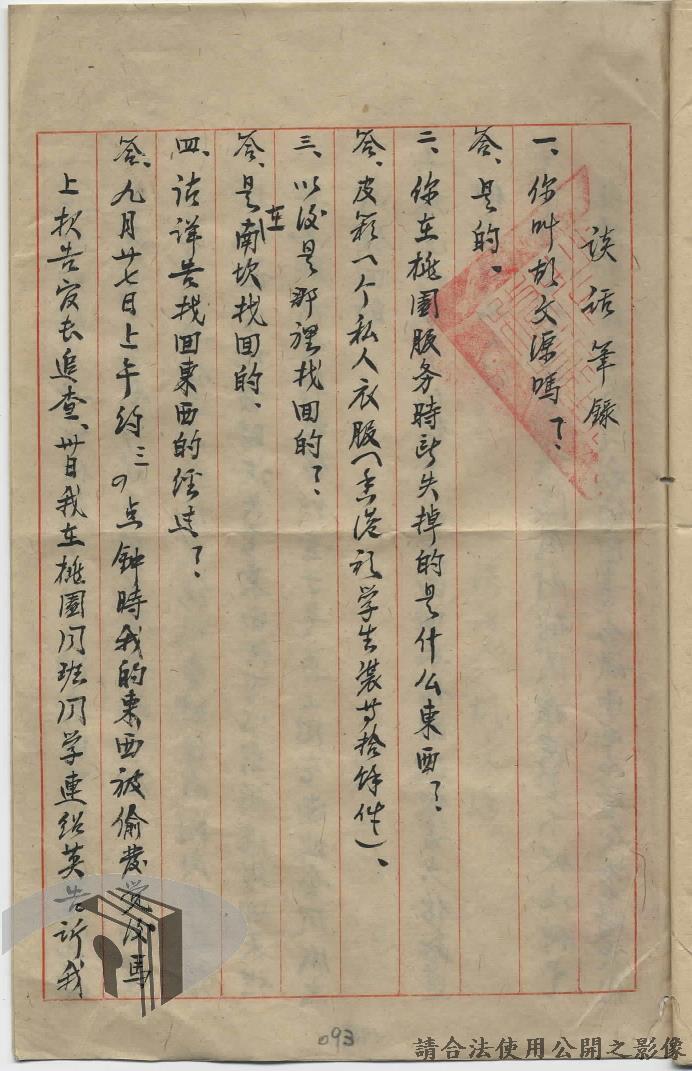 談话筆錄
一、你叫胡文源嗎？
答、是的、
二、你在桃園服务時所失掉的是什么東西？
答、皮箱一个私人衣服（香港衫学生装等拾餘件）、
三、以後是那裡找回的？
答、是在南坎找回的、
四、请详告找回東西的经过？
答、九月廿七日上午约三四点鐘時我的東西被偷發觉後馬
上报告官长追查、卅日我在桃園同班同学連绍英告訴我
093
請合法使用公開之影像